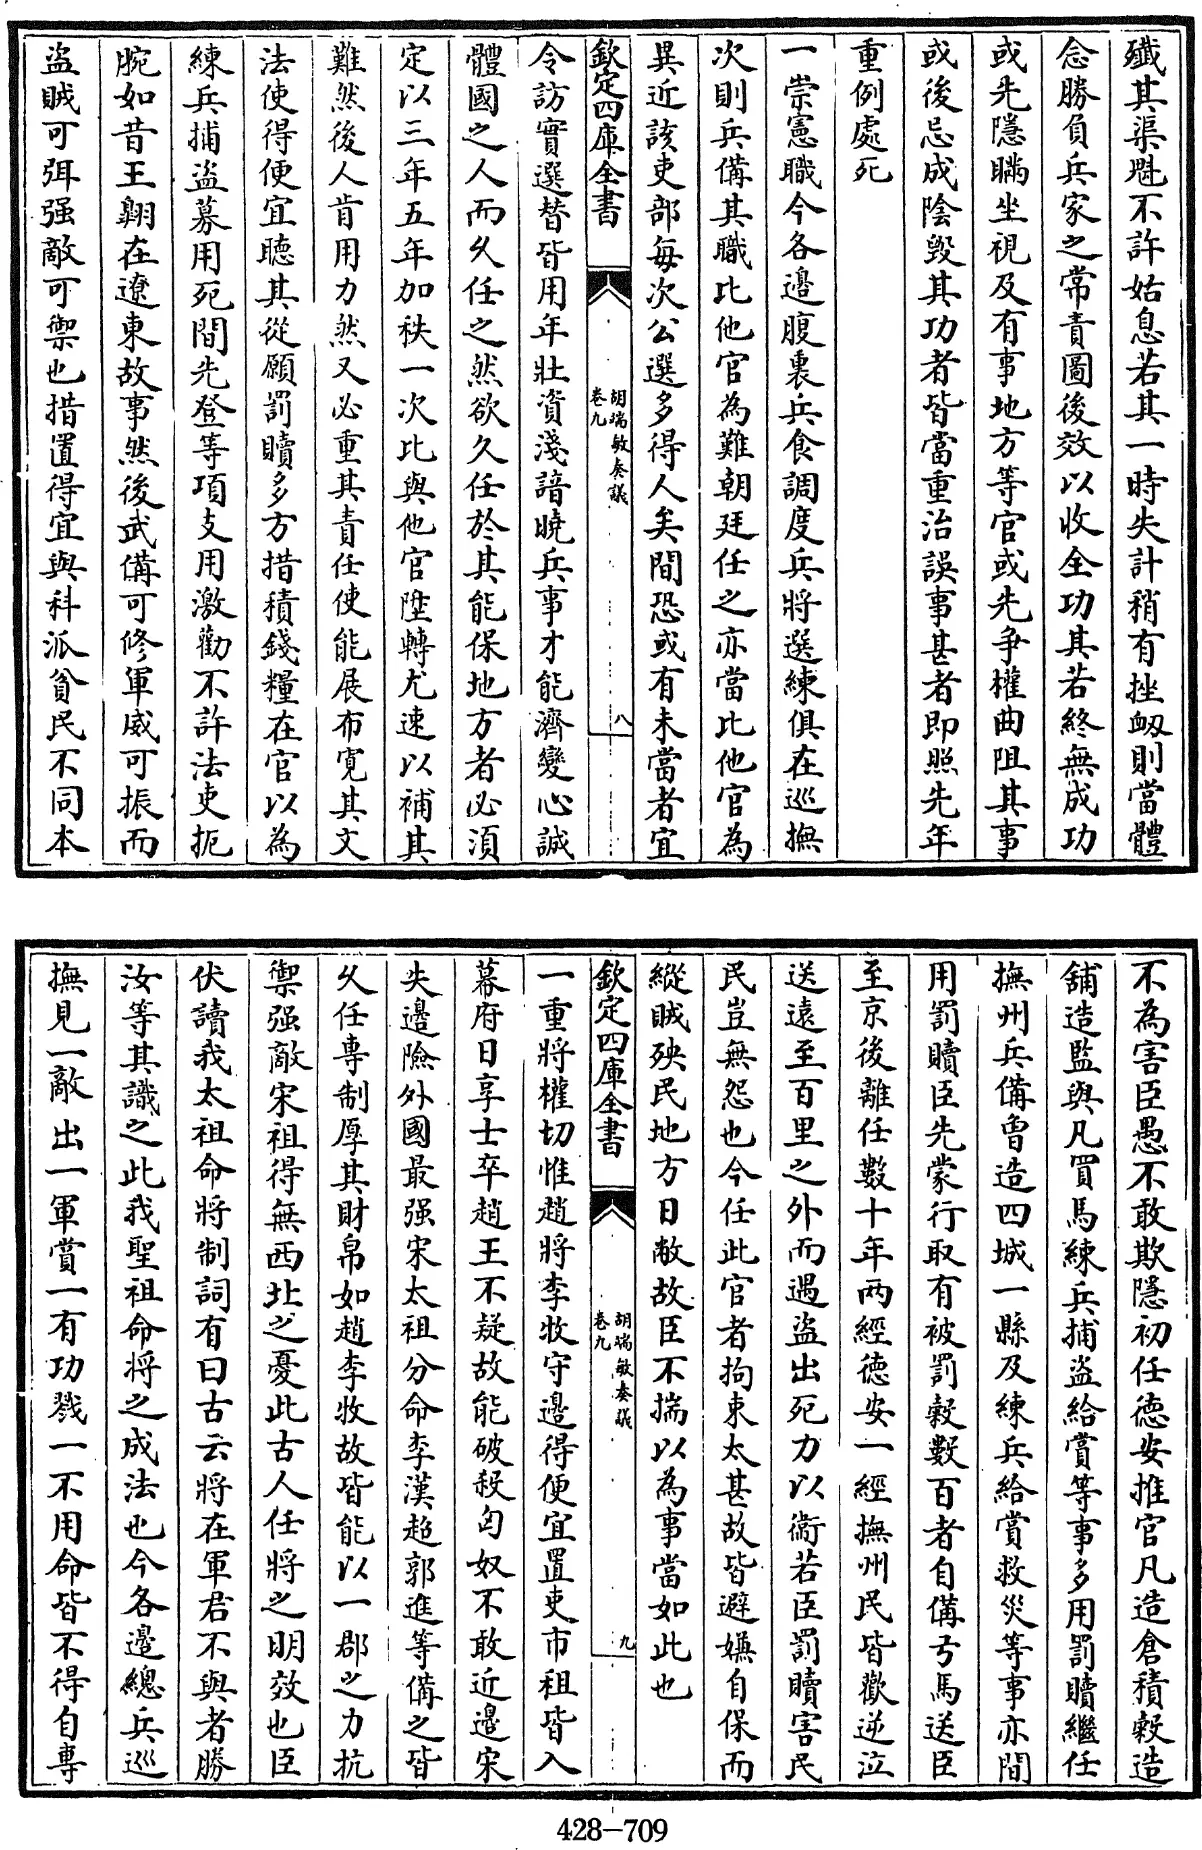 殲其渠魁不許姑息若其一時失計稍有挫衂則當體
念勝負兵家之常責圖後效以收全功其若終無成功
或先隱瞞坐視及有事地方等官或先爭權曲阻其事
或後忌成陰毀其功者皆當重治誤事甚者即照先年
重例處死
一崇憲職今各邊腹裏兵食調度兵將選練俱在巡撫
次則兵備其職比他官為難朝廷任之亦當比他官為
異近該吏部每次公選多得人矣間恐或有未當者宜
欽定四庫全書
胡端敏奏議
卷九
八
令訪實選替皆用年壯資淺諳曉兵事才能濟變心誠
體國之人而久任之然欲久任於其能保地方者必須
定以三年五年加秩一次比與他官陞轉尤速以補其
難然後人肯用力然又必重其責任使能展布寛其文
法使得便宜聽其從願罰贖多方措積錢糧在官以為
練兵捕盜募用死間先登等項支用激勸不許法吏扼
腕如昔王翺在遼東故事然後武備可修軍威可振而
盜賊可弭强敵可禦也措置得宜與科派貧民不同本
不為害臣愚不敢欺隱初任德安推官凡造倉積穀造
舖造監與凡買馬練兵捕盜給賞等事多用罰贖繼任
撫州兵備曾造四城一縣及練兵給賞救災等事亦間
用罰贖臣先蒙行取有被罰穀數百者自備弓馬送臣
至京後離任數十年两經德安一經撫州民皆歡逆泣
送遠至百里之外而遇盜出死力以衞若臣罰贖害民
民豈無怨也今任此官者拘束太甚故皆避嫌自保而
縱賊殃民地方日敝故臣不揣以為事當如此也
欽定四庫全書
胡端敏奏議
卷九
九
一重將權切惟趙將李牧守邊得便宜置吏市租皆入
幕府日享士卒趙王不疑故能破殺匈奴不敢近邊宋
失邊險外國最强宋太祖分命李漢超郭進等備之皆
久任專制厚其財帛如趙李牧故皆能以一郡之力抗
禦强敵宋祖得無西北之憂此古人任將之明效也臣
伏讀我太祖命將制詞有曰古云將在軍君不與者勝
汝等其識之此我聖祖命將之成法也今各邊總兵巡
撫見一敵出一軍賞一有功戮一不用命皆不得自專
428-709